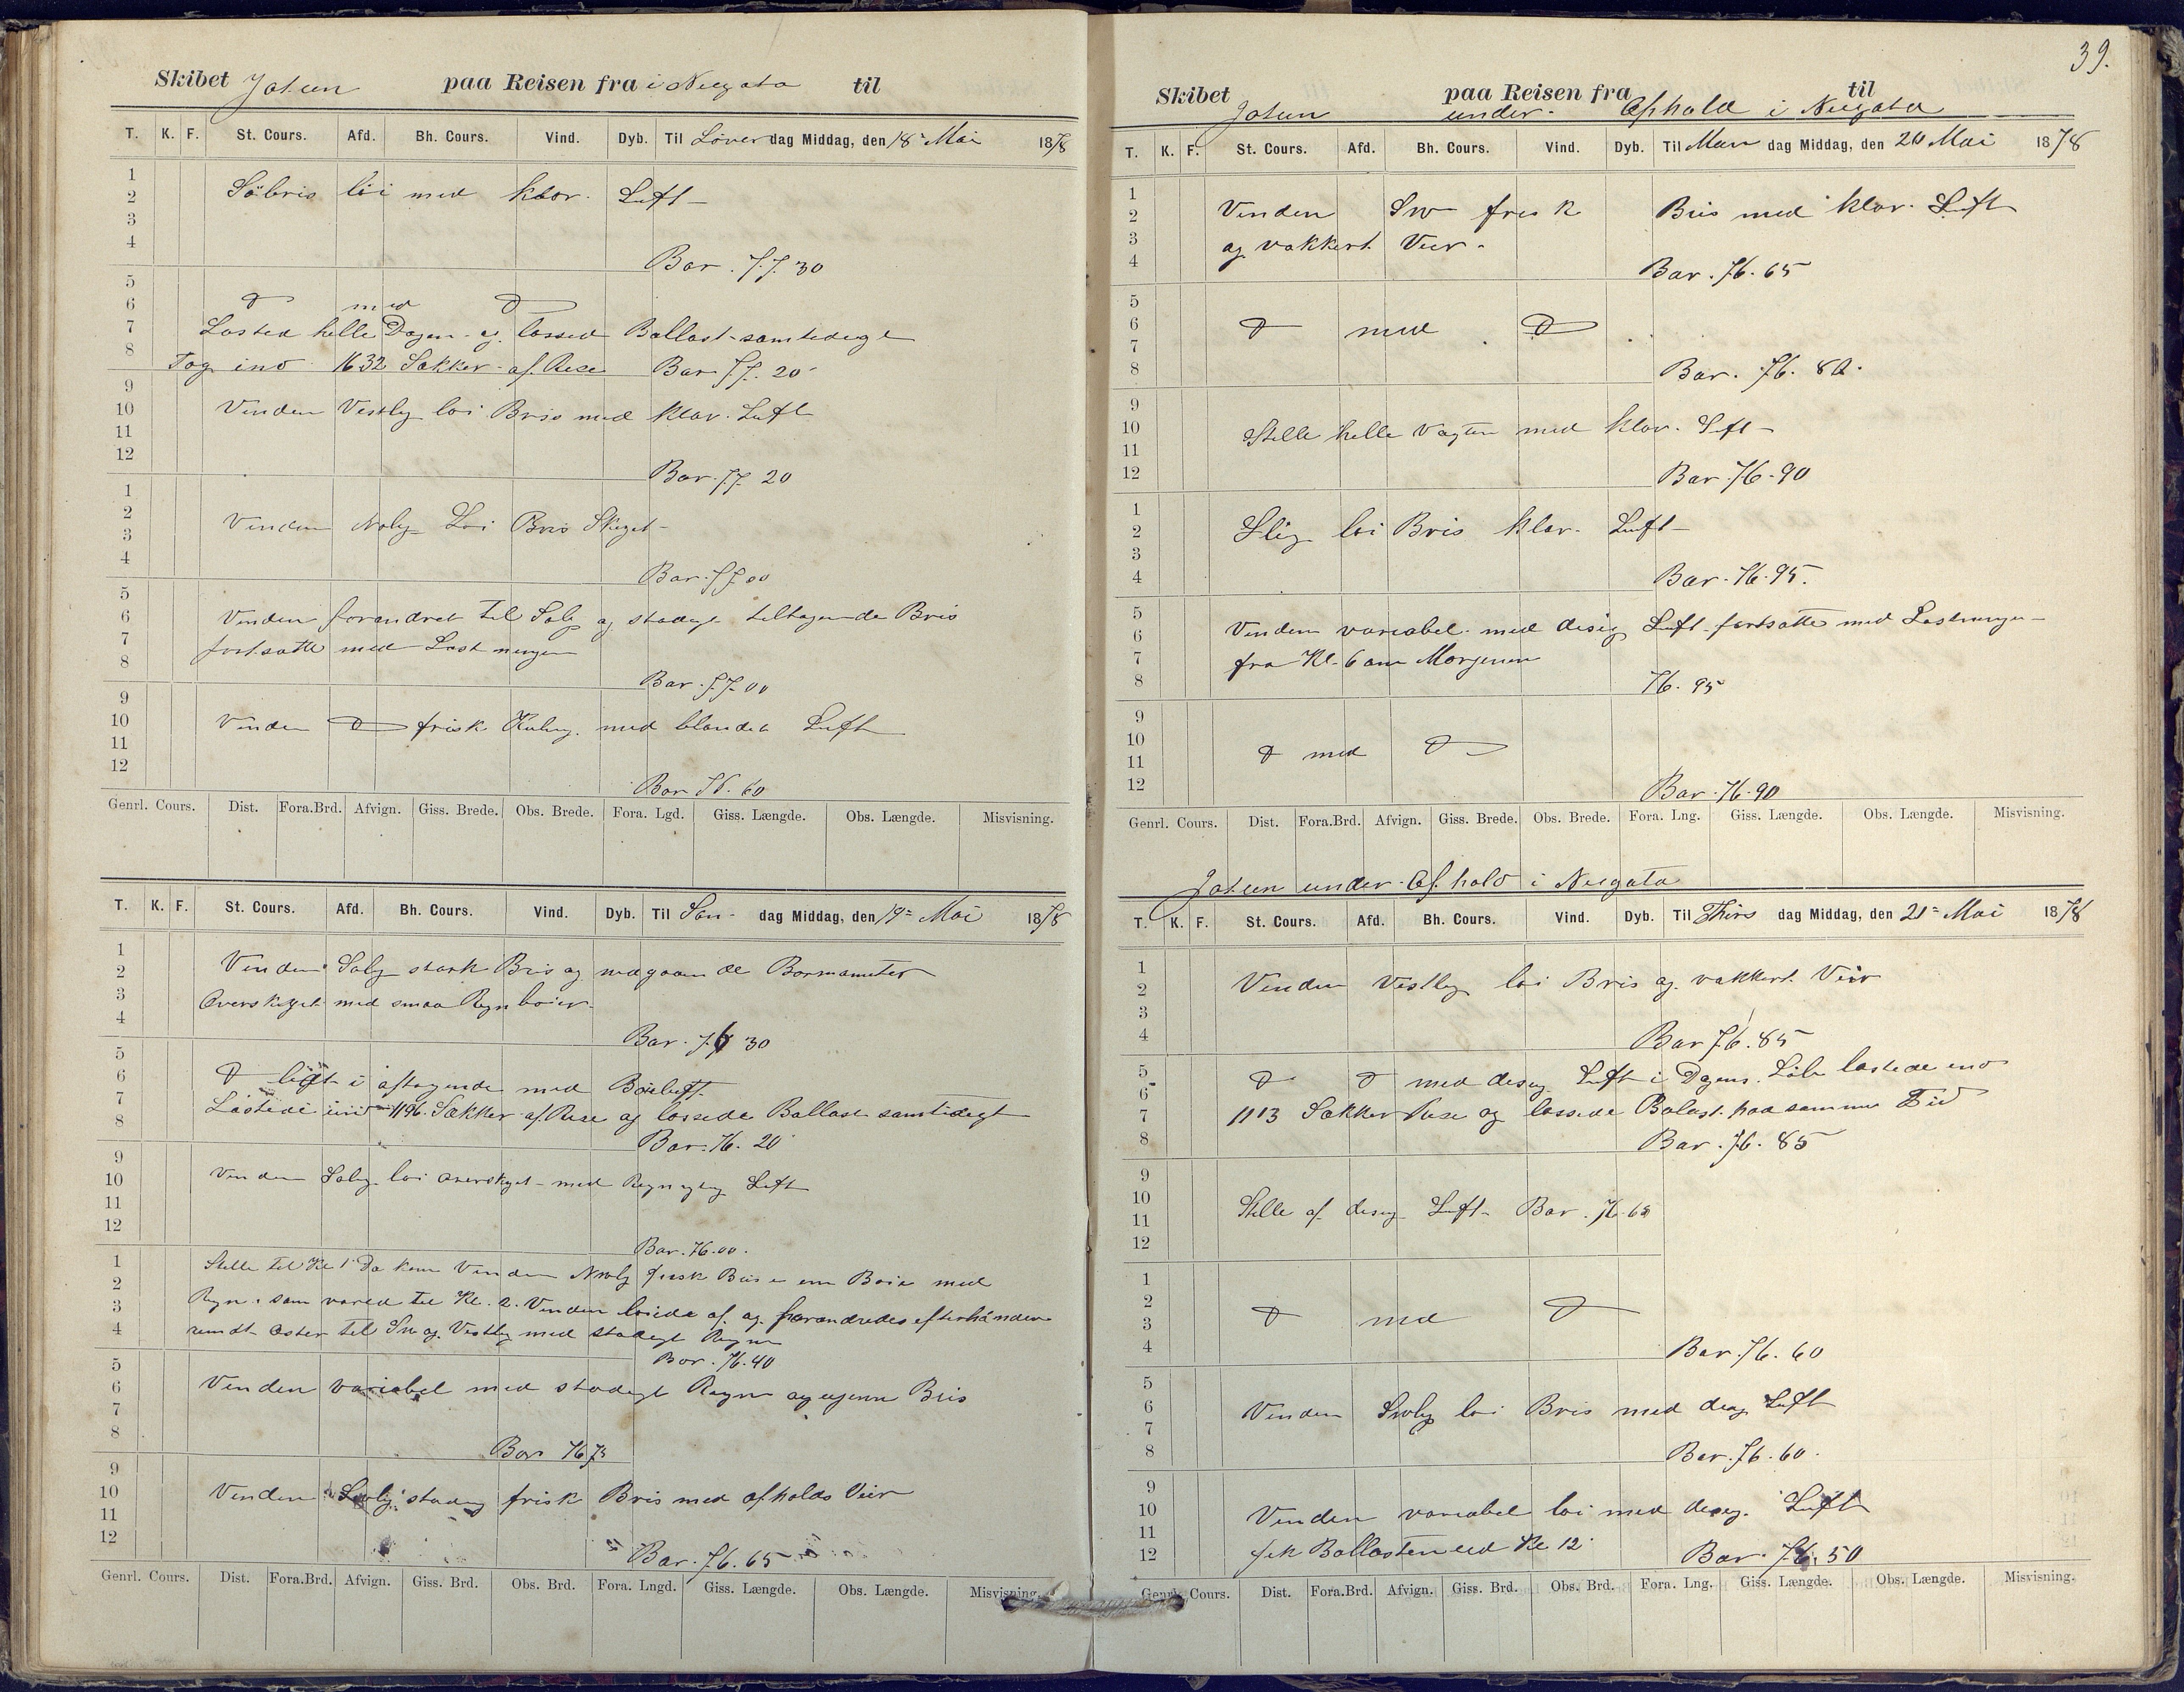 Skibet Jotun paa Reisen fra i Neegata til
T. K. F. St. Cours. Afd. Bh. Cours. Vind. Dyb. Til Löver dag Middag, den 18= Mai 1878
1
2 Söbris löi med klar. Luft
3
4 Bar. 77. 30
5
6 d med d
7 Losted helle Dagen og lossed Ballast samtedegt
8 Tog ind 1632 Sækker af Rese Bar 77. 20
9
10 Vinden Vestlig loi Bris med klar. Luft
11
12 Bar. 77 20
1
2 Vinden Nolig Loi Bris Skyet
3
4 Bar. 77 00
5
6 Vinden forandret til Solig og stadigt tiltagende Bris
7 fortsatte med Lastningen
8 Bar. 77. 00
9
10 Vinden d frisk Kuling. med blandet Luft
11
12 Bar 76. 60
Genrl. Cours. Dist. Fora.Brd. Afvign. Giss. Brede. Obs. Brede. Fora. Lgd. Giss. Længde. Obs. Længde. Misvisning.
T. K. F. St. Cours. Afd. Bh. Cours. Vind. Dyb. Til Søn- dag Middag, den 19= Mai 1878
1
2 Vinden Solig stark Bris og nedgaaende Barmameter
3 Overskyet med smaa Regnboier
4 Bar. 76 30
5
6 d ligt i aftagende med Boieluft
7 Lastede ind 1196. Sækker af Rese og lossede Ballast samtidegt
8 Bar. 76. 20
9
10 Vinden Solig. loi overskyet med Regnagtig Luft
11
12 Bar. 76.00.
1 Stille til Kl 1 Da kom Vinden Nwlig frisk Bris i en Boie med
2 Regn. som vared til Kl. 2. Vinden loiede af og forandredes efterhånden
3 rundt Oster til Sw og. Vestlig med stadigt Regn
4 Bar. 76. 40
5
6 Vinden variabel med stadigt Regn og ujenn Bris
7
8 Bar 76 75
9
10 Vinden Swlig stadig frisk Bris med afholds Veir
11
12 Bar. 76. 65
Genrl. Cours. Dist. Fora.Brd. Afvign. Giss. Brd. Obs. Brd. Fora. Lngd. Giss. Længde. Obs. Længde. Misvisning.
39.
Skibet Jotun paa Reisen fra til
under Ophold i Neegata
T. K. F. St. Cours. Afd. Bh. Cours. Vind. Dyb. Til Man dag Middag, den 20 Mai 1878
1
2 Vinden Sw frisk Bris med klar. Luft
3 og vakkert Veir
4 Bar. 76. 65
5
6 d med d
7
8 Bar. 76. 80.
9
10 Stille helle Vagten med klar. Luft
11
12 Bar. 76. 90
1
2 Slig loi Bris klar. Luft
3
4 Bar. 76. 95.
5
6 Vinden variabel. med disig Luft fortsatte med Lastningen
7 fra Kl. 6 om Morgenen
8 76. 95
9
10 d med d
11
12 Bar. 76. 90
Genrl. Cours. Dist. Fora.Brd. Afvign. Giss. Brede. Obs. Brede. Fora. Lng. Giss. Længde. Obs. Længde. Misvisning.
Jotun under Ophold i Neegata
T. K. F. St. Cours. Afd. Bh. Cours. Vind. Dyb. Til Thirs dag Middag, den 21= Mai 1878
1
2 Vinden Vestlig loi Bris og. vakkert Veir
3
4 Bar 76. 85
5 d d med disig Luft i Dagens Løb lastede ind
6
7 1113 Sækker Rese og lossede Balast paa samme Tid
8 Bar. 76. 85
9
10 Stille af disig Luft. Bar. 76. 65
11
12
1
2 d med d
3
4 Bar. 76. 60
5
6 Vinden Swlig loi Bris med disig Luft
7
8 Bar. 76. 60.
9
10 Vinden variabel loi med disig. Luft
11
12 fik Ballasten ud Kl 12 Bar. 76. 50
Genrl. Cours. Dist. Fora.Brd. Afvign. Giss. Brd. Obs. Brd. Fora. Lng. Giss. Længde. Obs. Længde. Misvisning.